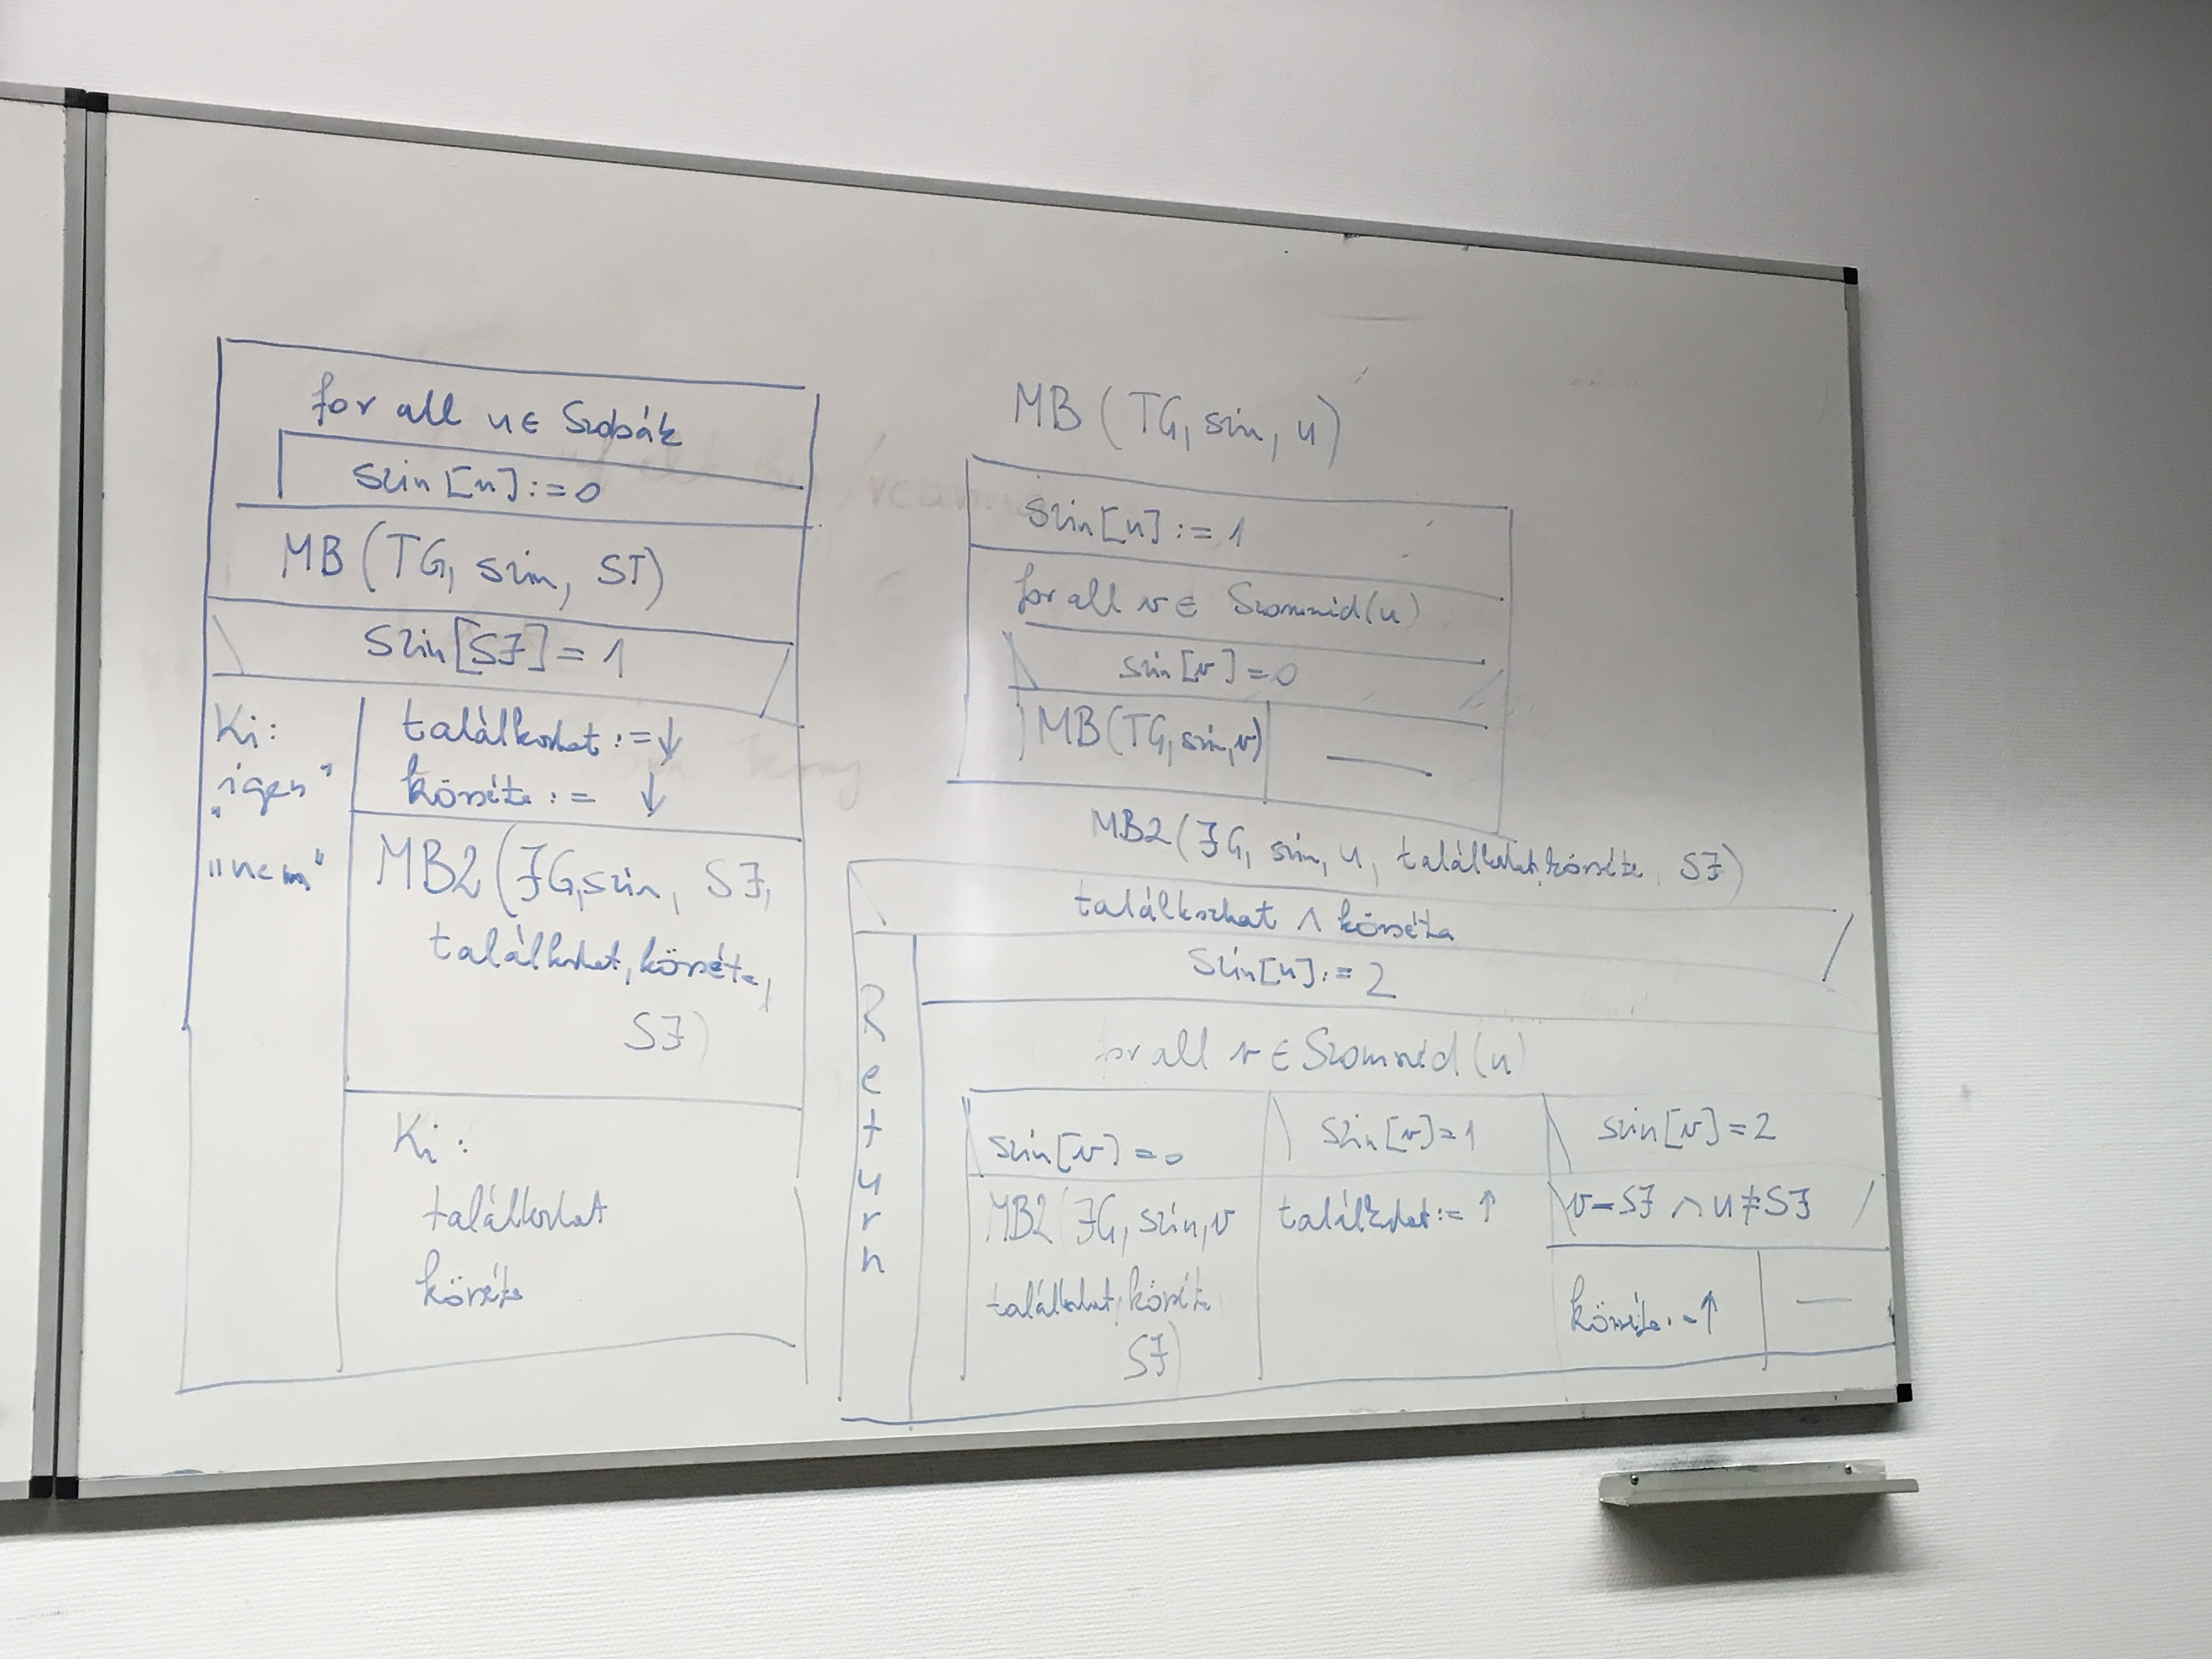 for all u ∈ Szobák
szin[u] := 0
MB(TG, szin, ST)
Szin[SJ] = 1
Ki:
"igen"
"nem"
találkozhat := ↓
körséta := ↓
MB2(JG, szin, SJ,
találkozhat, körséta,
SJ)
Ki:
találkozhat
körséta
MB(TG, szin, u)
Szin[u] := 1
for all v ∈ Szomszéd(u)
szin[v] = 0
MB(TG, szin, v)
—
MB2(JG, szin, u, találkozhat, körséta, SJ)
találkozhat ∧ körséta
Return
Szin[u] := 2
for all v ∈ Szomszéd(u)
szin[v] = 0
szin[v] = 1
szin[v] = 2
MB2(JG, szin, v
találkozhat, körséta
SJ)
találkozhat := ↑
v = SJ ∧ u ≠ SJ
körséta := ↑
—